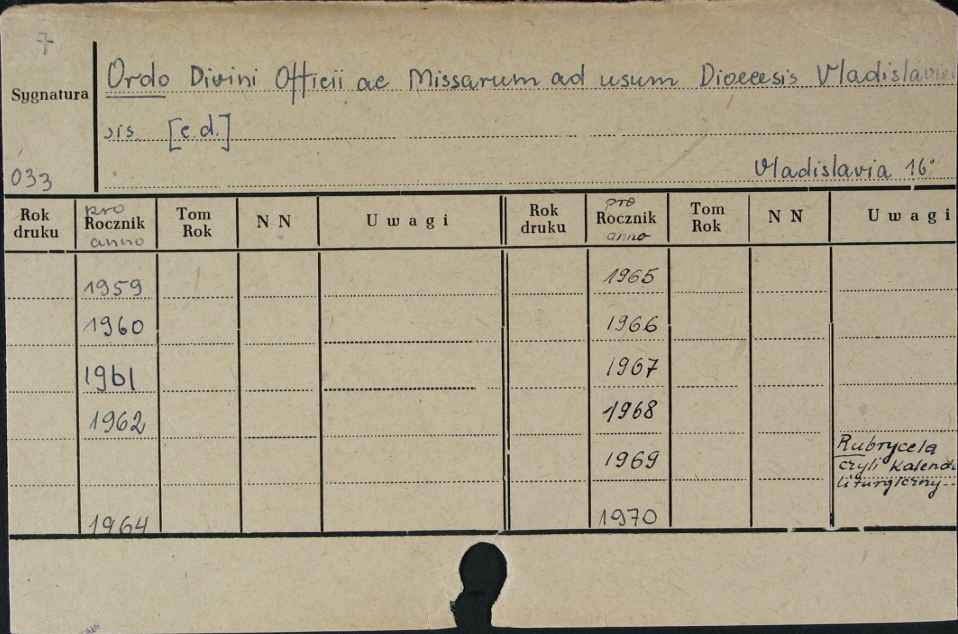 7
Ordo Divini Officii ac Missarum ad usum Dioecesis Vladislavien
Sygnatura
sis [e d.]
033
Vladislavia 16°
Rok druku pro Rocznik anno Tom Rok N N Uwagi Rok druku pro Rocznik anno Tom Rok N N Uwagi
1959 1965
1960 1966
1961 1967
1962 1968
1969 Rubrycela
czyli Kalenda
liturgiczny
1964 1970